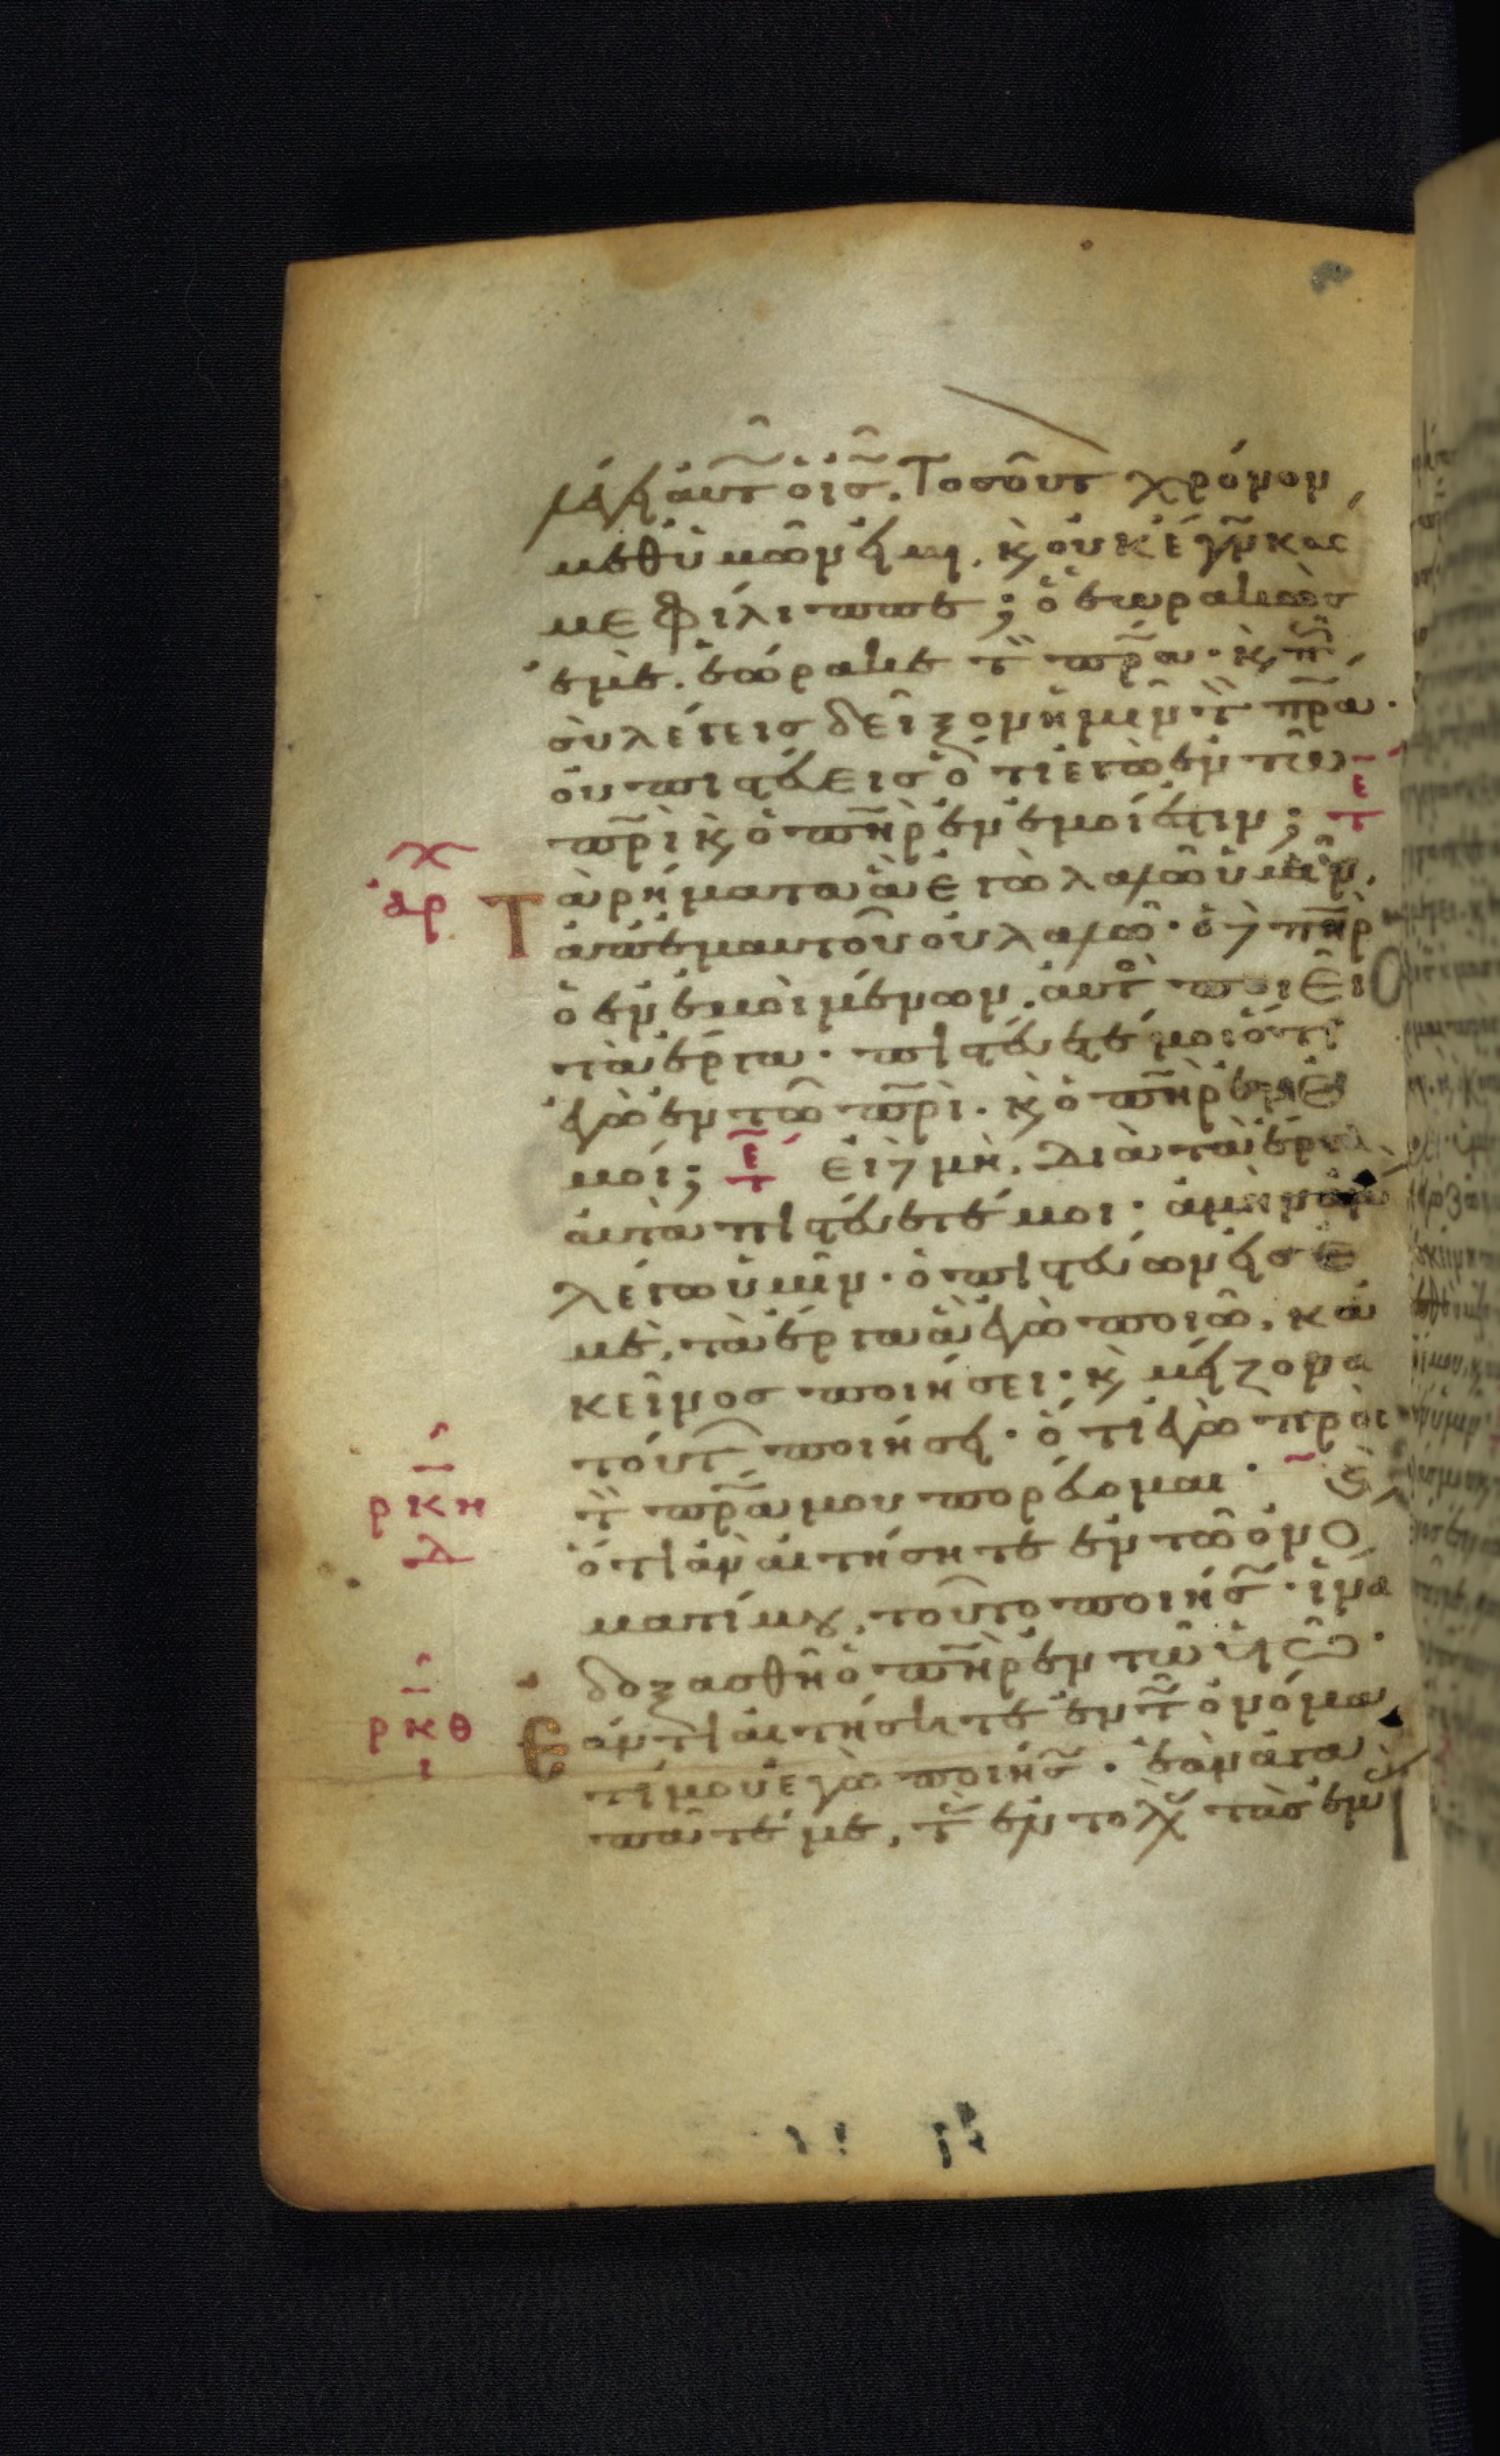 λέγει αὐτ ὁ ις. Τοσοῦτ χρόνον
μεθ ὑμῶν εἰμι, κ οὐκ ἔγνκας
με Φίλιππε; ὁ ἑωρακὼς
ἐμὲ. ἑώρακε τ πρα. κ π
σὺ λέγεις δεῖξον ἡμῖν τ πρα.
οὐ πιστεύεις ὅτι ἐγὼ ἐν τῶ
πρὶ κ ὁ πηρ ἐν ἐμοί ἐστιν; τε
χ
αρ
Τ ὰ ρήματα ἃ ἐγὼ λαλῶ ὑμῖν,
ἀπ ἐμαυτοῦ οὐ λαλῶ. ὁ δὲ πηρ
ὁ ἐν ἐμοὶ μένων. αὐτὸ ποιεῖ
τὰ ἔργα. πιστεύετέ μοι ὅτι
ἐγὼ ἐν τῶ πρὶ. κ ὁ πηρ ἐν ἐ
μοί; τε εἰ δὲ μὴ. διὰ τὰ ἔργα
αὐτὰ πιστεύετέ μοι. ἀμὴν ἀμὴν
λέγω ὑμῖν. ὁ πιστεύων εἰς ἐ
μὲ, τὰ ἔργα ἃ ἐγὼ ποιῶ, κα
κεῖνος ποιήσει. κ μείζονα
τούτ ποιήσει. ὅτι ἐγὼ πρὸς
τ πρα μου πορεύομαι. κ
ρκη
δ
ὅ τι ἂν αἰτήσητε ἐν τῶ ὀνό
ματί μου, τοῦτο ποιήσ. ἵνα
δοξασθῆ ὁ πηρ ἐν τῶ υἱῶ.
ρκθ
ι
Ε άν τι αἰτήσητε ἐν τ ὀνόμα
τί μου ἐγὼ ποιήσ. ἐὰν ἀγα
πᾶτέ με, τ ἐντολ τὰς ἐμ